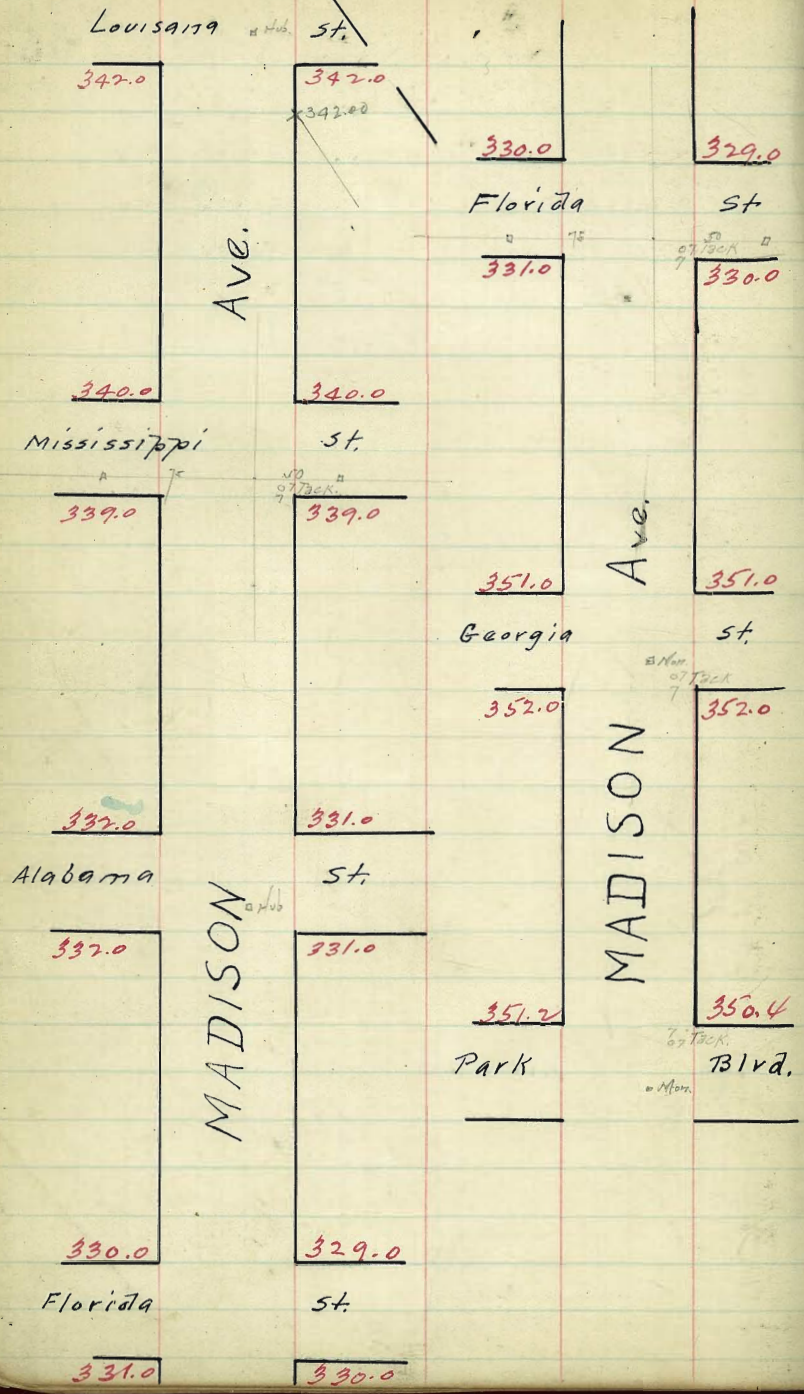 Louisana St.
Hub.
342.0 342.0
342.00
Ave.
340.0 340.0
Mississippi St.
75 50
Tack.
339.0 339.0
332.0 331.0
Alabama St.
Hub
332.0 331.0
MADISON
330.0 329.0
Florida St.
331.0 330.0
330.0 329.0
Florida St
75 50
Tack
331.0 330.0
Ave.
351.0 351.0
Georgia St.
Mon.
Tack
352.0 352.0
MADISON
351.2 350.4
Tack.
Park Blvd.
Mon.